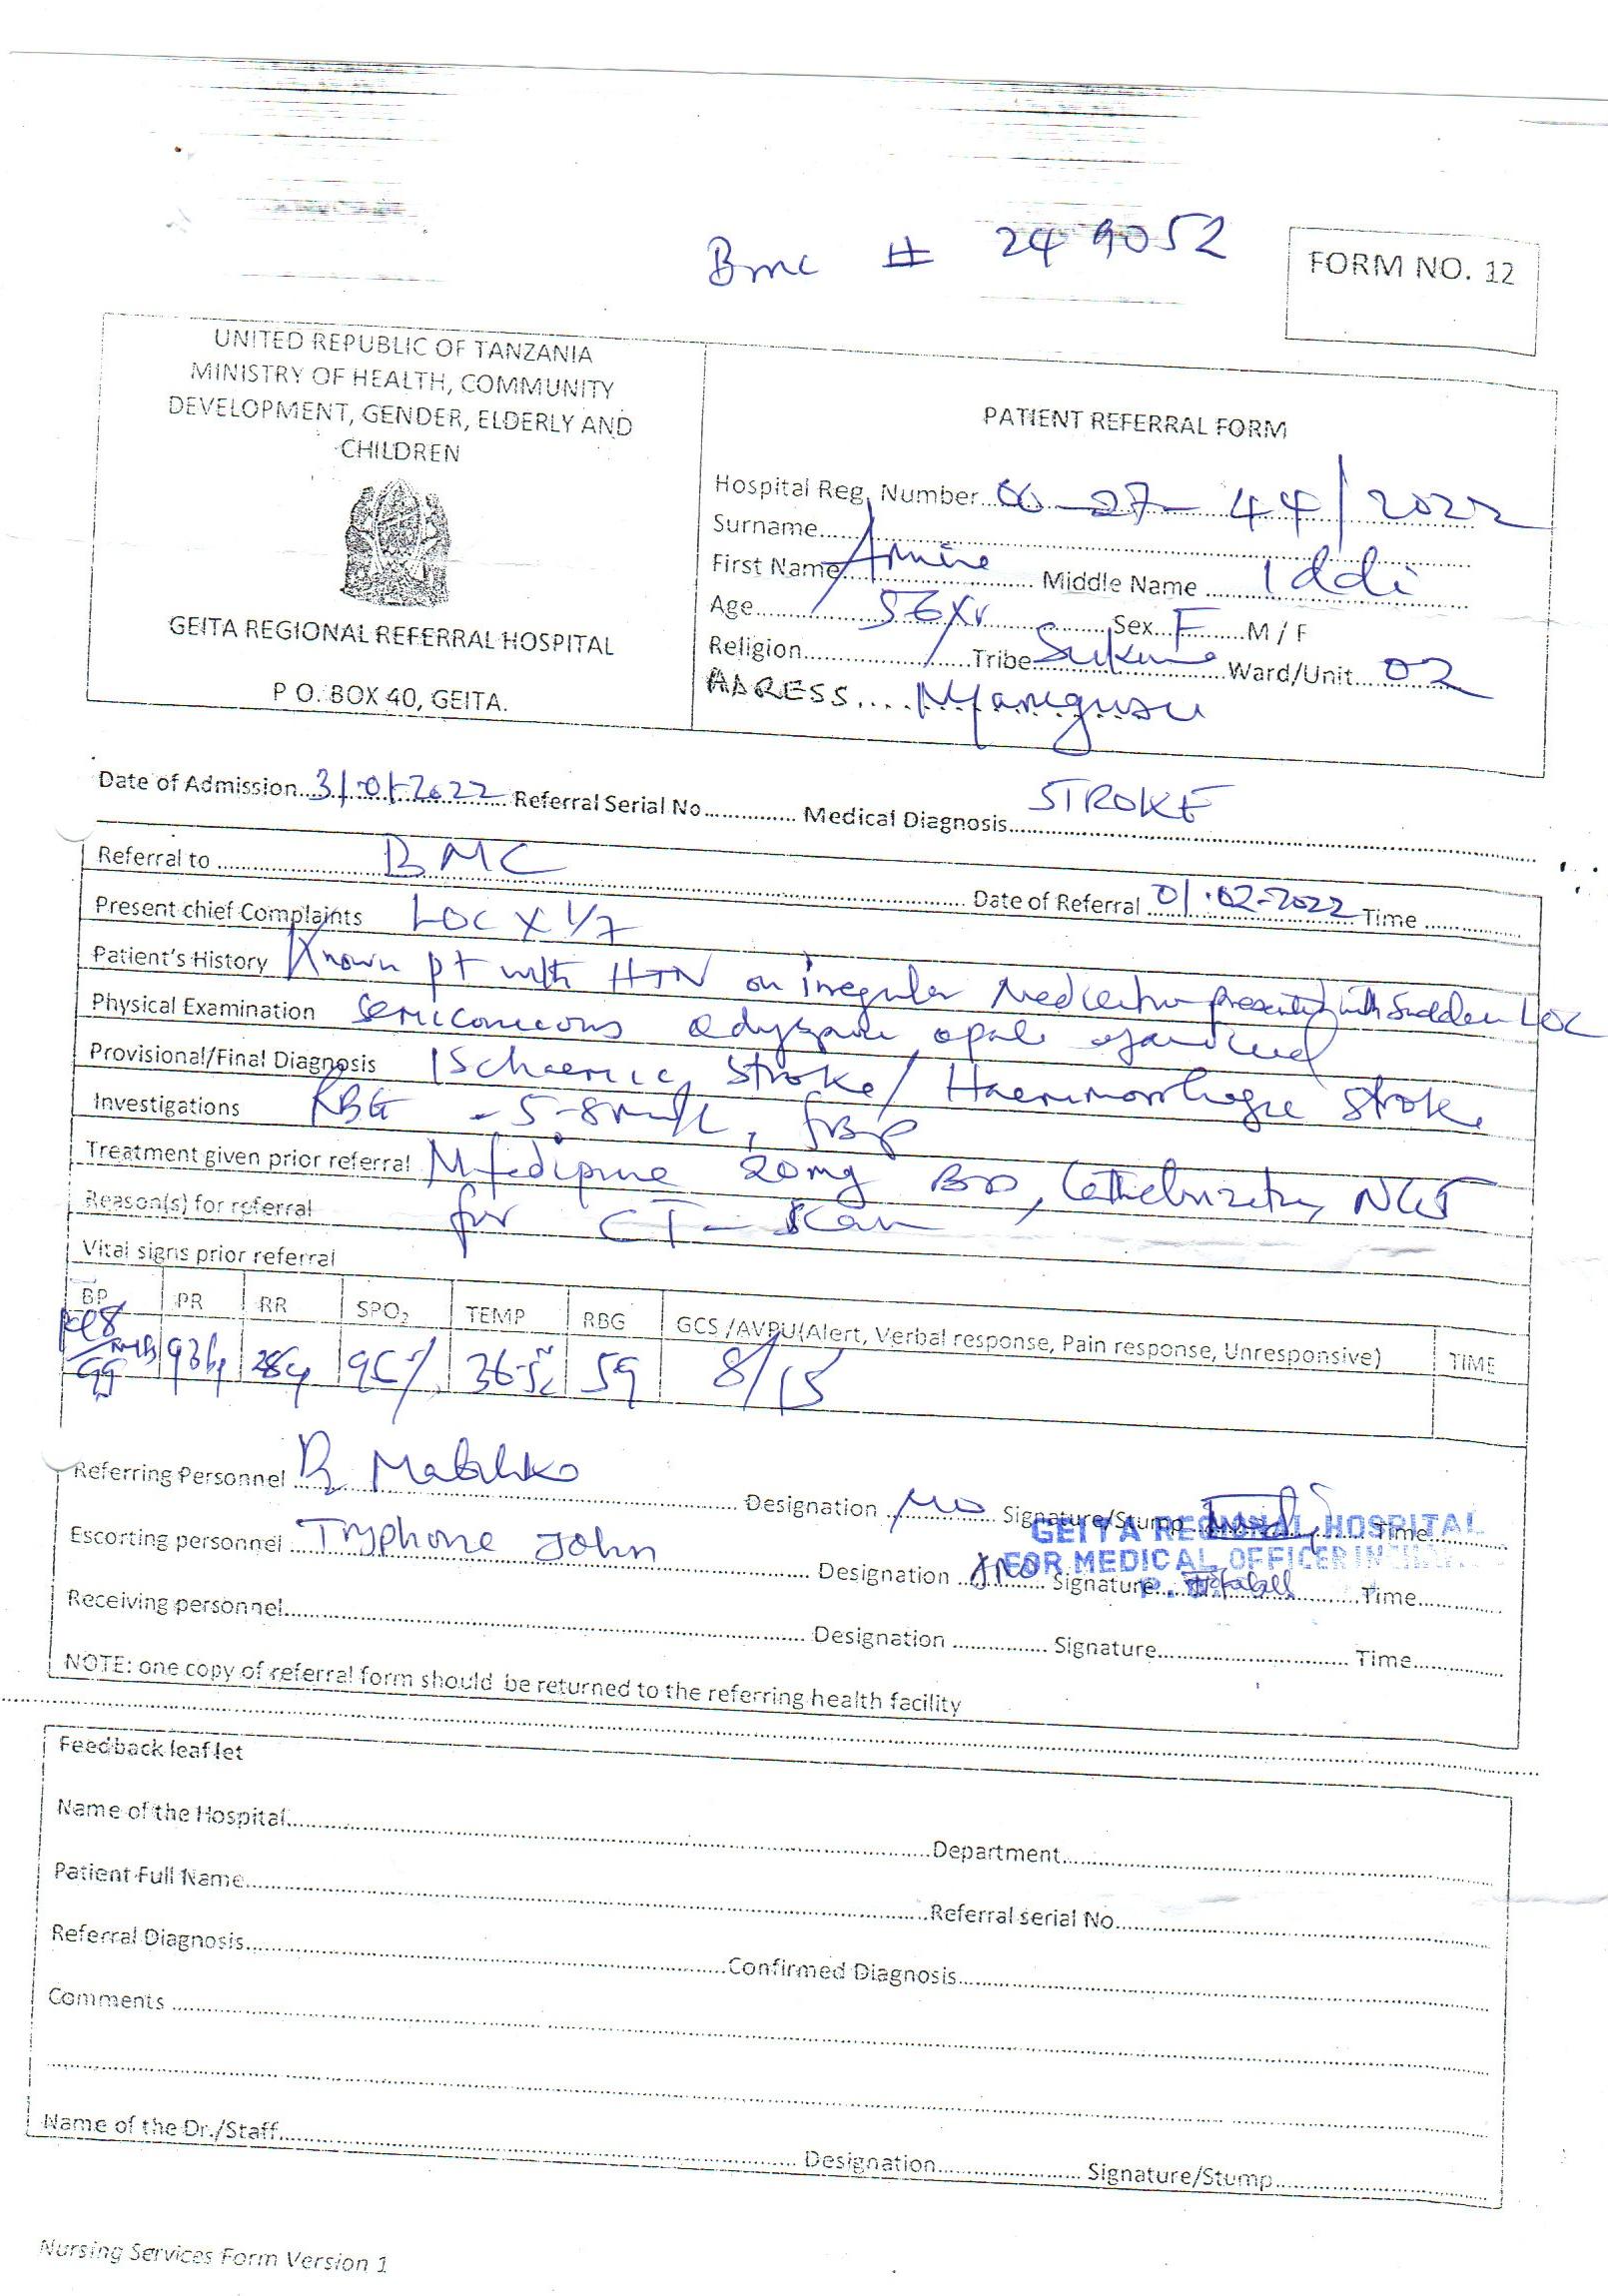 Bmc # 249052
FORM NO. 12
UNITED REPUBLIC OF TANZANIA
MINISTRY OF HEALTH, COMMUNITY
DEVELOPMENT, GENDER, ELDERLY AND
CHILDREN
GEITA REGIONAL REFERRAL HOSPITAL
P O. BOX 40, GEITA.
PATIENT REFERRAL FORM
Hospital Reg. Number 00-27-44/2022
Surname
First Name Amina Middle Name Iddi
Age 56yr Sex F M / F
Religion Tribe Sukuma Ward/Unit 02
ADRESS.... Nyarugusu
Date of Admission 31-01-2022 Referral Serial No Medical Diagnosis STROKE
Referral to BMC Date of Referral 01.02-2022 Time
Present chief Complaints LOC X 1/7
Patient's History Known pt with HTN on irregular Medication presented with Sudden LOC
Physical Examination Semiconscious
Provisional/Final Diagnosis Ischaemic Stroke/ Haemorrhagic Stroke
Investigations RBG - 5.8 , FBP
Treatment given prior referral Nifedipine 20mg BD, Catheterization, NGT
Reason(s) for referral for CT-Scan
Vital signs prior referral
BP PR RR SPO2 TEMP RBG GCS /AVPU(Alert, Verbal response, Pain response, Unresponsive) TIME
99 93 95% 36.5 59 8/15
Referring Personnel Dr Designation MD Signature/Stump Time
GEITA REGIONAL HOSPITAL
Escorting personnel Tryphone John Designation Signature Time
FOR MEDICAL OFFICER IN
Receiving personnel Designation Signature Time
NOTE: one copy of referral form should be returned to the referring health facility
Feedback leaflet
Name of the Hospital Department
Patient Full Name Referral serial No
Referral Diagnosis Confirmed Diagnosis
Comments
Name of the Dr./Staff Designation Signature/Stump
Nursing Services Form Version 1